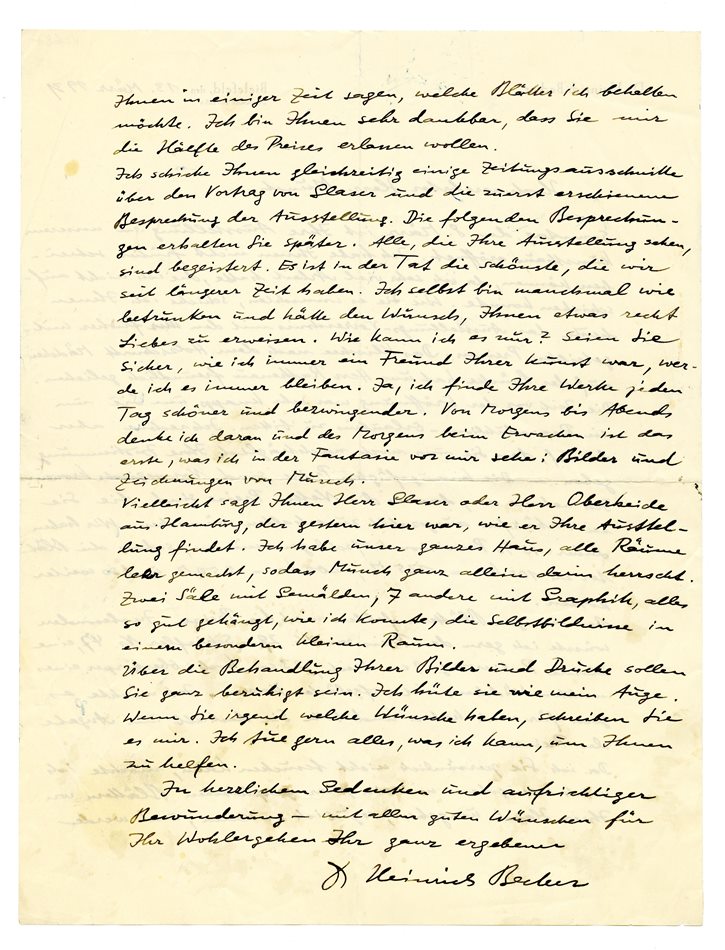 Ihnen in einiger Zeit sagen, welche Blätter ich behalten
möchte. Ich bin Ihnen sehr dankbar, dass Sie mir
die Hälfte des Preises erlassen wollen.
Ich schicke Ihnen gleichzeitig einige Zeitungsausschnitte
über den Vortrag von Glaser und die zuerst erschienene
Besprechung der Ausstellung. Die folgenden Besprechun-
gen erhalten Sie später. Alle, die Ihre Ausstellung sehen,
sind begeistert. Es ist in der Tat die schönste, die wir
seit längerer Zeit haben. Ich selbst bin manchmal wie
betrunken und hätte den Wunsch, Ihnen etwas recht
Liebes zu erweisen. Wie kann ich es nur? Seien Sie
sicher, wie ich immer ein Freund Ihrer Kunst war, wer-
de ich es immer bleiben. Ja, ich finde Ihre Werke jeden
Tag schöner und bezwingender. Von Morgens bis Abends
denke ich daran und des Morgens beim Erwachen ist das
erste, was ich in der Fantasie vor mir sehe: Bilder und
Zeichnungen von Munch.
Vielleicht sagt Ihnen Herr Glaser oder Herr Oberheide
aus Hamburg, der gestern hier war, wie er Ihre Ausstel-
lung findet. Ich habe unser ganzes Haus, alle Räume
leer gemacht, sodass Munch ganz allein darin herrscht.
Zwei Säle mit Gemälden, 7 andere mit Graphik, alles
so gut gehängt, wie ich konnte, die Selbstbildnisse in
einem besonderen kleinen Raum.
Über die Behandlung Ihrer Bilder und Drucke sollen
Sie ganz beruhigt sein. Ich hüte sie wie mein Auge.
Wenn Sie irgend welche Wünsche haben, schreiben Sie
es mir. Ich tue gern alles, was ich kann, um Ihnen
zu helfen.
In herzlichem Gedenken und aufrichtiger
Bewunderung – mit allen guten Wünschen für
Ihr Wohlergehen Ihr ganz ergebener
Heinrich Becker